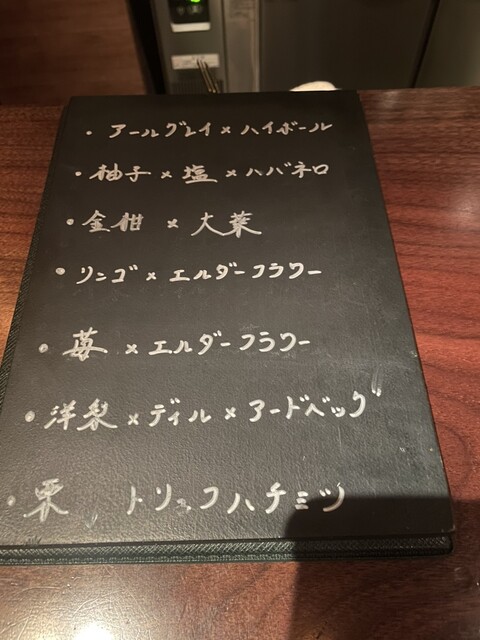 ・アールグレイ×ハイボール
・柚子×塩×ハバネロ
・金柑×大葉
・リンゴ×エルダーフラワー
・苺×エルダーフラワー
・洋梨×ディル×アードベッグ
・栗 トリュフハチミツ